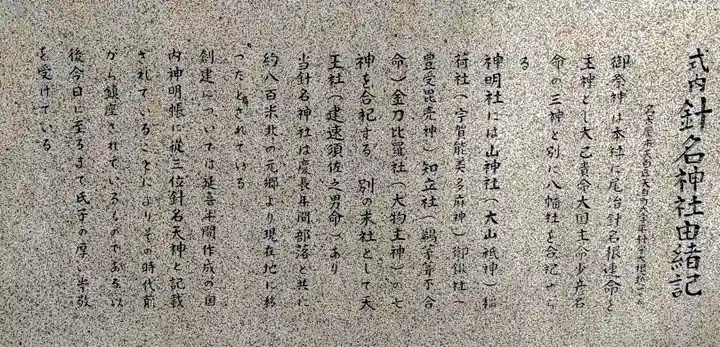 式内針名神社由緒記
名古屋市天白区天白町大字平針字大根ヶ越
御祭神は本社に尾治針名根連命を
主神とし大己貴命大国主命少彦名
命の三神と別に八幡社を合祀せら
る
神明社には山神社(大山祇神)稲
荷社(宇賀能美多麻神)御鍬社(
豊受毘売神)知立社(鵜茅葺不合
命)金刀比羅社(大物主神)の七
神を合祀する 別の末社として天
王社(建速須佐之男命)あり
当針名神社は慶長年間部落と共に
約八百米北の元郷より現在地に移
ったとされている
創建については延喜年間作成の国
内神明帳に従三位針名天神と記載
されていることによりその時代前
から鎮座されているものである以
後今日に至るまで氏子の厚い崇敬
を受けている